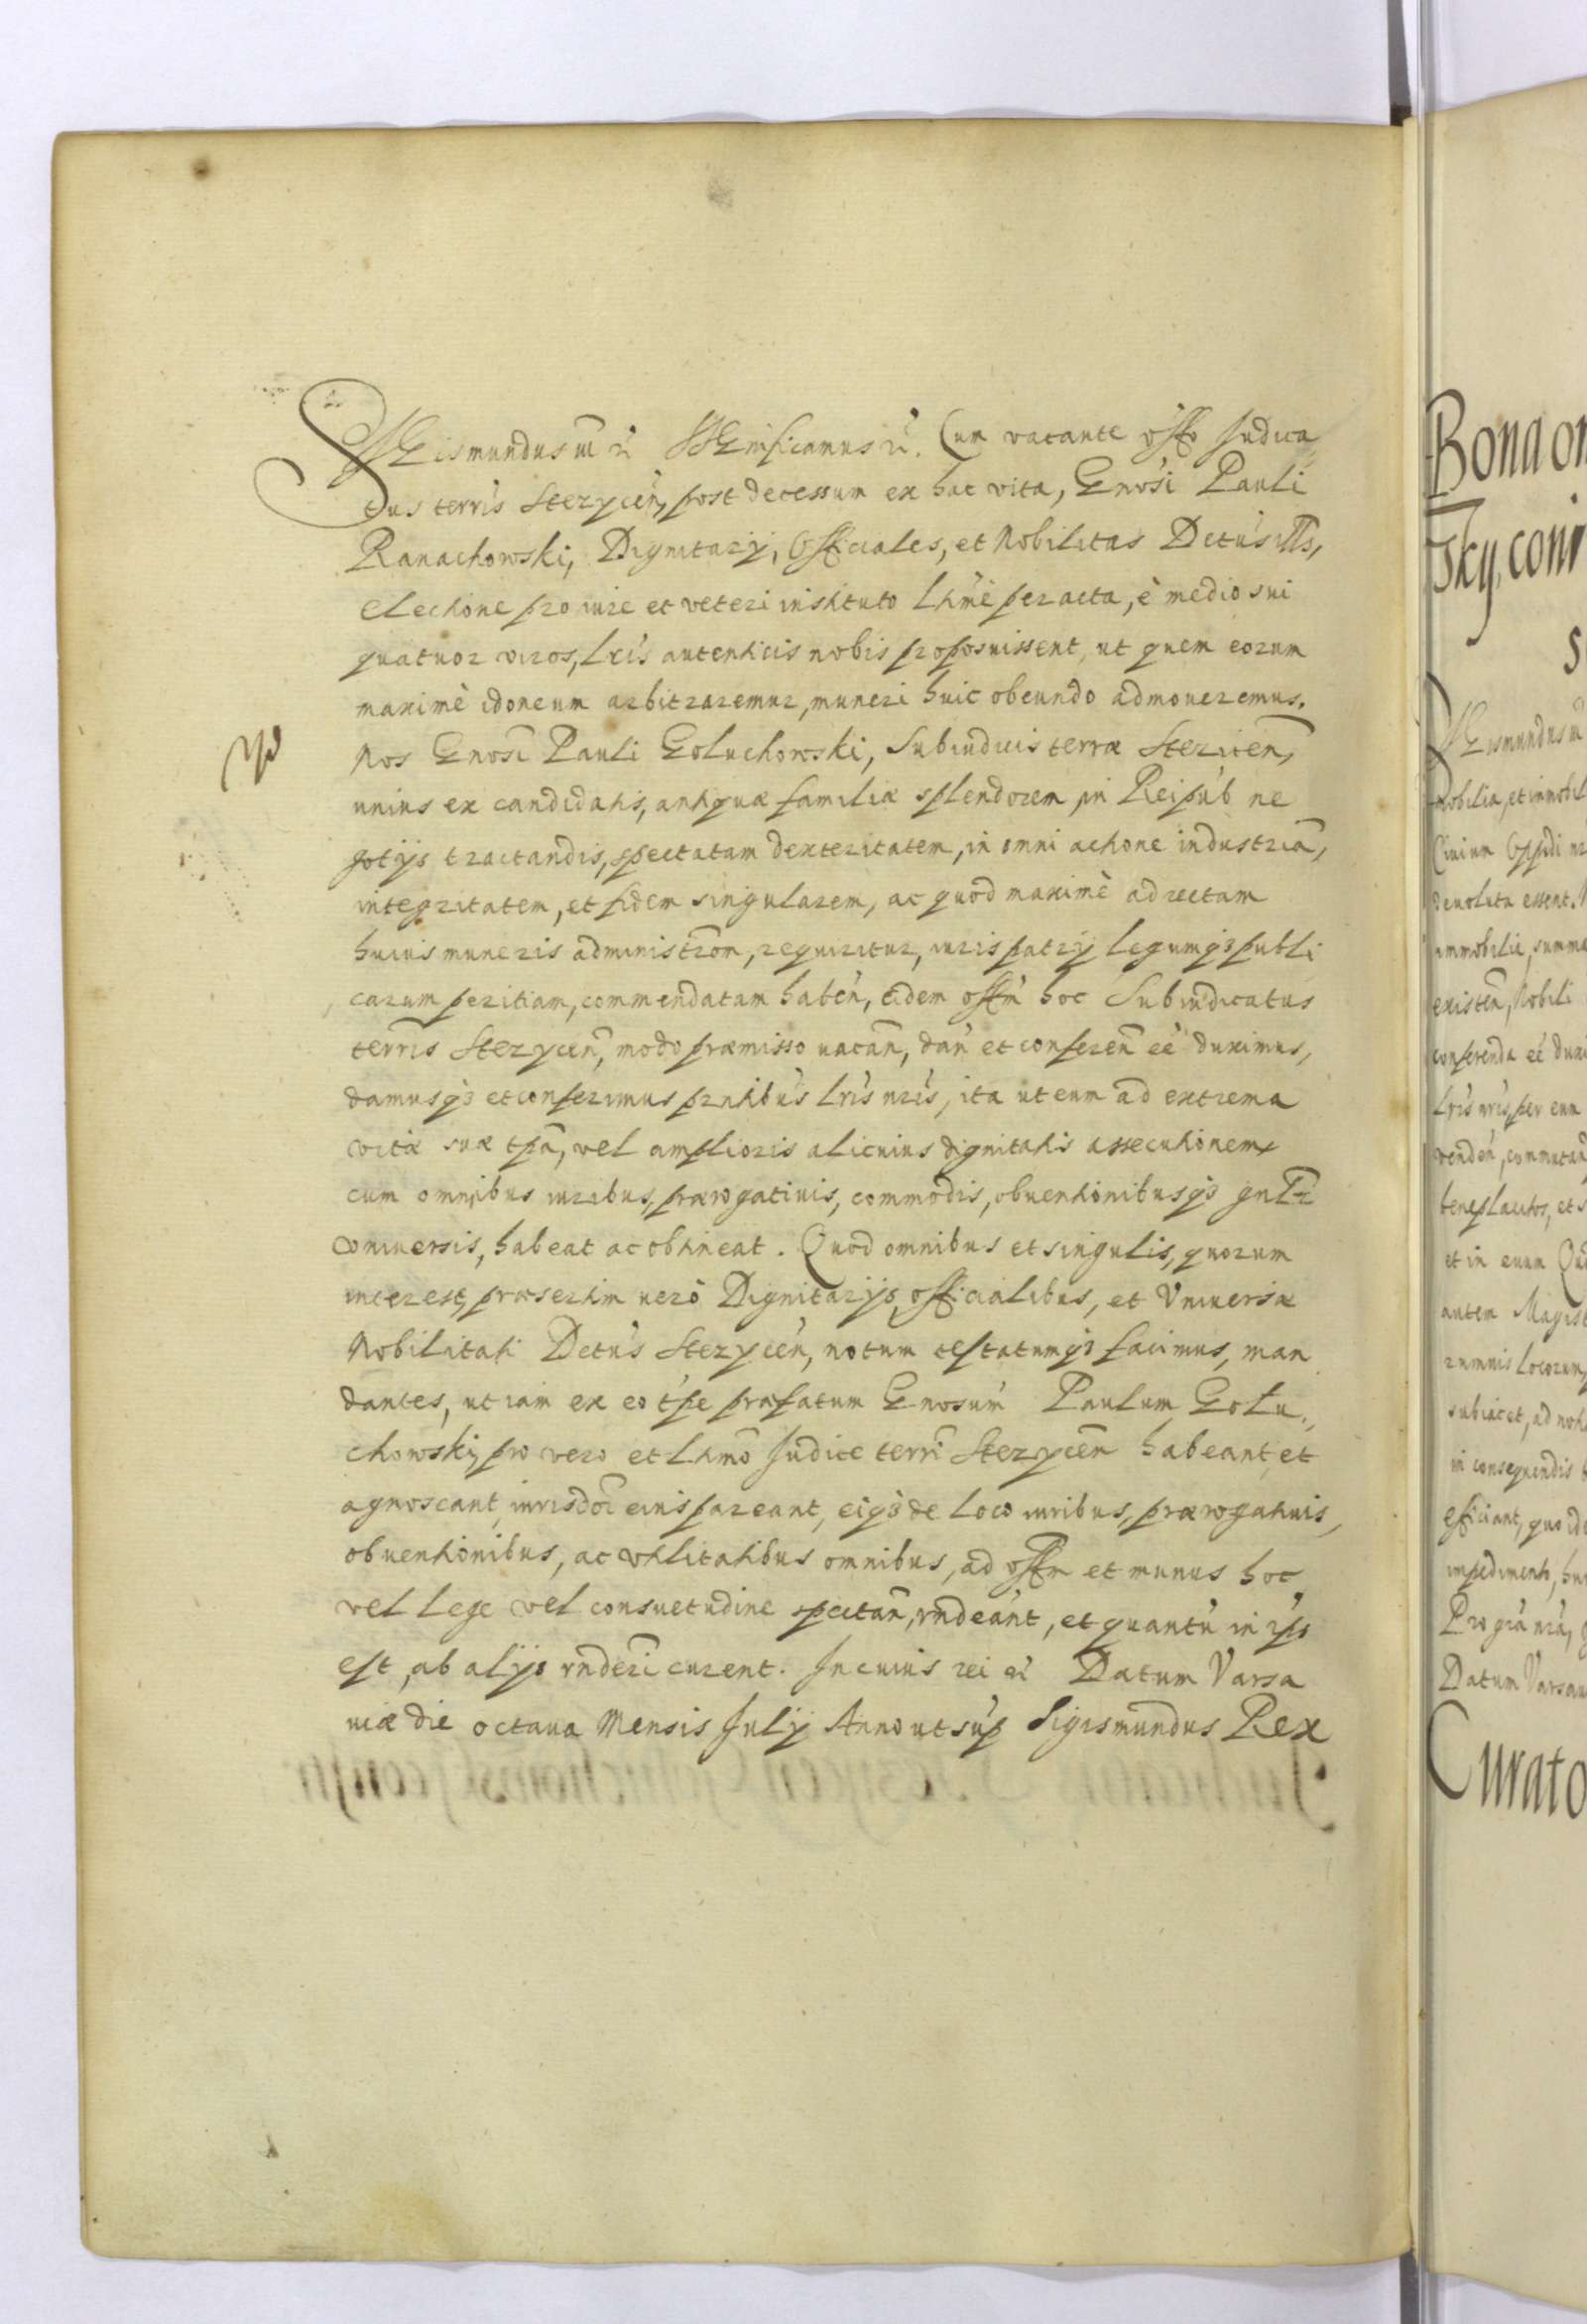 Sigismundus III etc. Significamus etc. Cum vacante offo Judica
tus terris Stezycen, post decessum ex hac vita, Gnosi Pauli
Ranachowski, Dignitarij, Officiales, et Nobilitas Dctus illis,
electione pro iure et veteri instituto Ltime peracta, è medio sui
quatuor viros, Lris autenticis nobis proposuissent, ut quem eorum
maximè idoneum arbitraremur, muneri huic obeundo admoveremus.
Nos Gnosi Pauli Goluchowski, Subiudicis terræ Steziten,
unius ex candidatis, antiquæ familiæ splendorem, in Reipub ne
gotijs tractandis, spectatam dexteritatem, in omni actione industriã,
integritatem, et fidem singularem, ac quod maximè ad rectam
huius muneris administrõm, requiritur, iuris patrij legumq3 publi
carum peritiam, commendatam haben, eidem offm hoc Subiudicatus
terris Stezycen, modo præmisso vacan, dan et conferen eè duximus,
damusq3 et conferimus pntibus Lris nris, ita ut eum ad extrema
vitæ suæ tpa, vel amplioris alicuius dignitatis assecutionem
cum omnibus iuribus, prærogativis, commodis, obventionibusq3 gnlr
vniuersis, habeat ac obtineat. Quod omnibus et singulis, quorum
interest, præsertim verò Dignitarijs, officialibus, et Vniuersæ
Nobilitati Dctus Stezycen, notum testatumq3 facimus, man
dantes, ut iam ex eo tpe præfatum Gnosum Paulum Golu
chowski, pro vero et Ltimo Judice terri Stezycen habeant et
agnoscant, iurisdoi eius pareant, eiq3 de loco iuribus, prærogatiuis,
obuentionibus, ac vtilitatibus omnibus, ad offm et munus hoc
vel lege vel consuetudine spectan, rndeant, et quantu in ips
est, ab alijs rnderi curent. In cuius rei etc. Datum Varsa
uiæ die octaua Mensis Julij Anno ut sup Sigismundus Rex
Bona om
sky, conf
Sigismundus III
mobilia, et immobil
Ciuium Oppidi nr
deuoluta essent. N
immobilia, summa
existen, Nobili
conferenda eè duxi
Lris nris, per eum
venden, commutan
beneplacitos, et s
et in eum Quo
autem Magist
rumuis locorum,
subiacet, ad noti
in consequendis b
efficiant, quo id
impedimenti, hui
Pro gra nra,
Datum Varsau
Curato